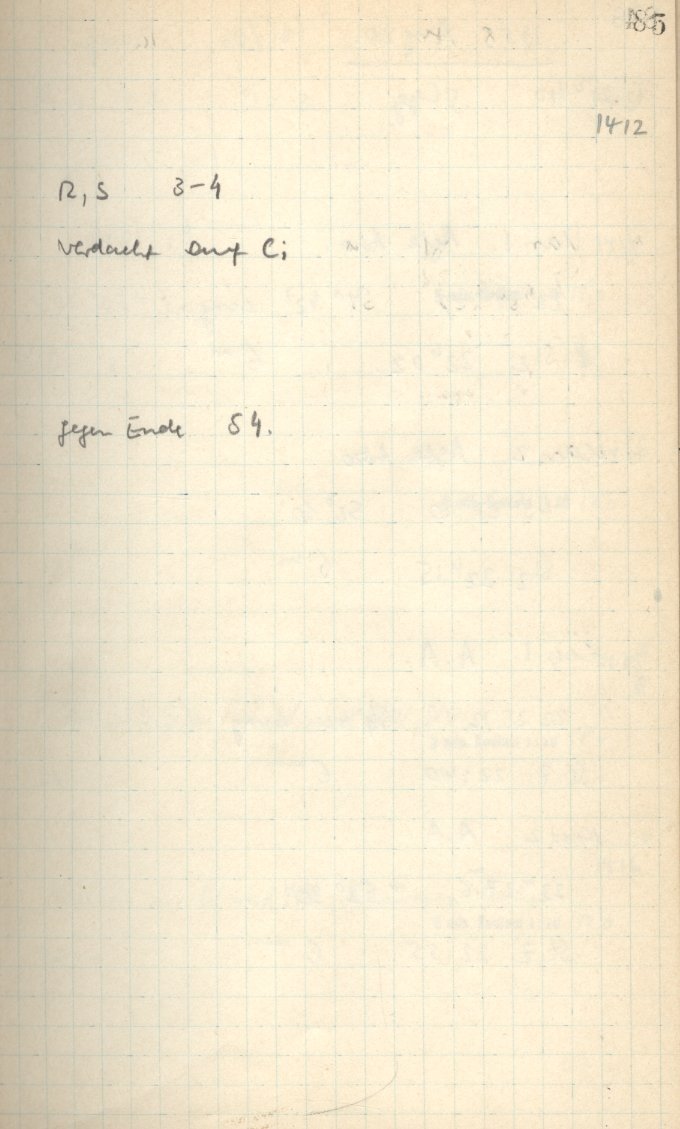 85
1412
R, S 3-4
Verdacht auf Ci
gegen Ende S 4.